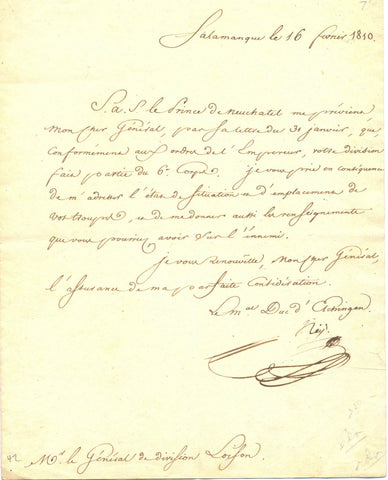 Salamanque le 16 fevrier 1810.
S. a. S. le Prince de neuchatel me prévient,
Mon cher Général, par sa lettre du 31 janvier, que
conformément aux ordres de l'Empereur, votre division
fait partie du 6e Corps. je vous prie en conséquence
de m'adresser l'état de situation et d'emplacement de
vos troupes, et de me donner aussi les renseignements
que vous pourriez avoir sur l'énnemi.
je vous renouvelle, Mon cher Général,
l'assurance de ma parfaite Considération.
Le mal Duc d'Elchingen
Ney.
Mr. le Général de division Loison.
42